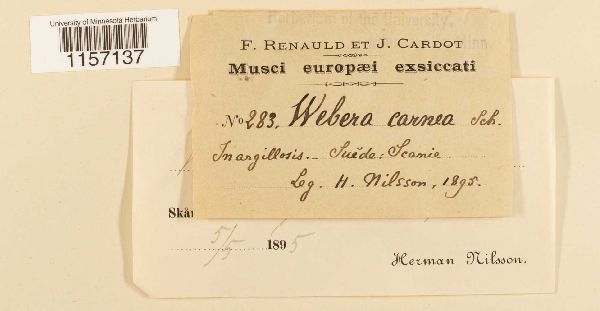 University of Minnesota Herbarium
1157137
Herbarium of the University,
F. RENAULD ET J. CARDOT
Musci europæi exsiccati
No 283. Webera carnea Sch.
In argillosis. - Suède: Scanie
Leg. H. Nilsson, 1895.
Skån
5/5 1895
Herman Nilsson.